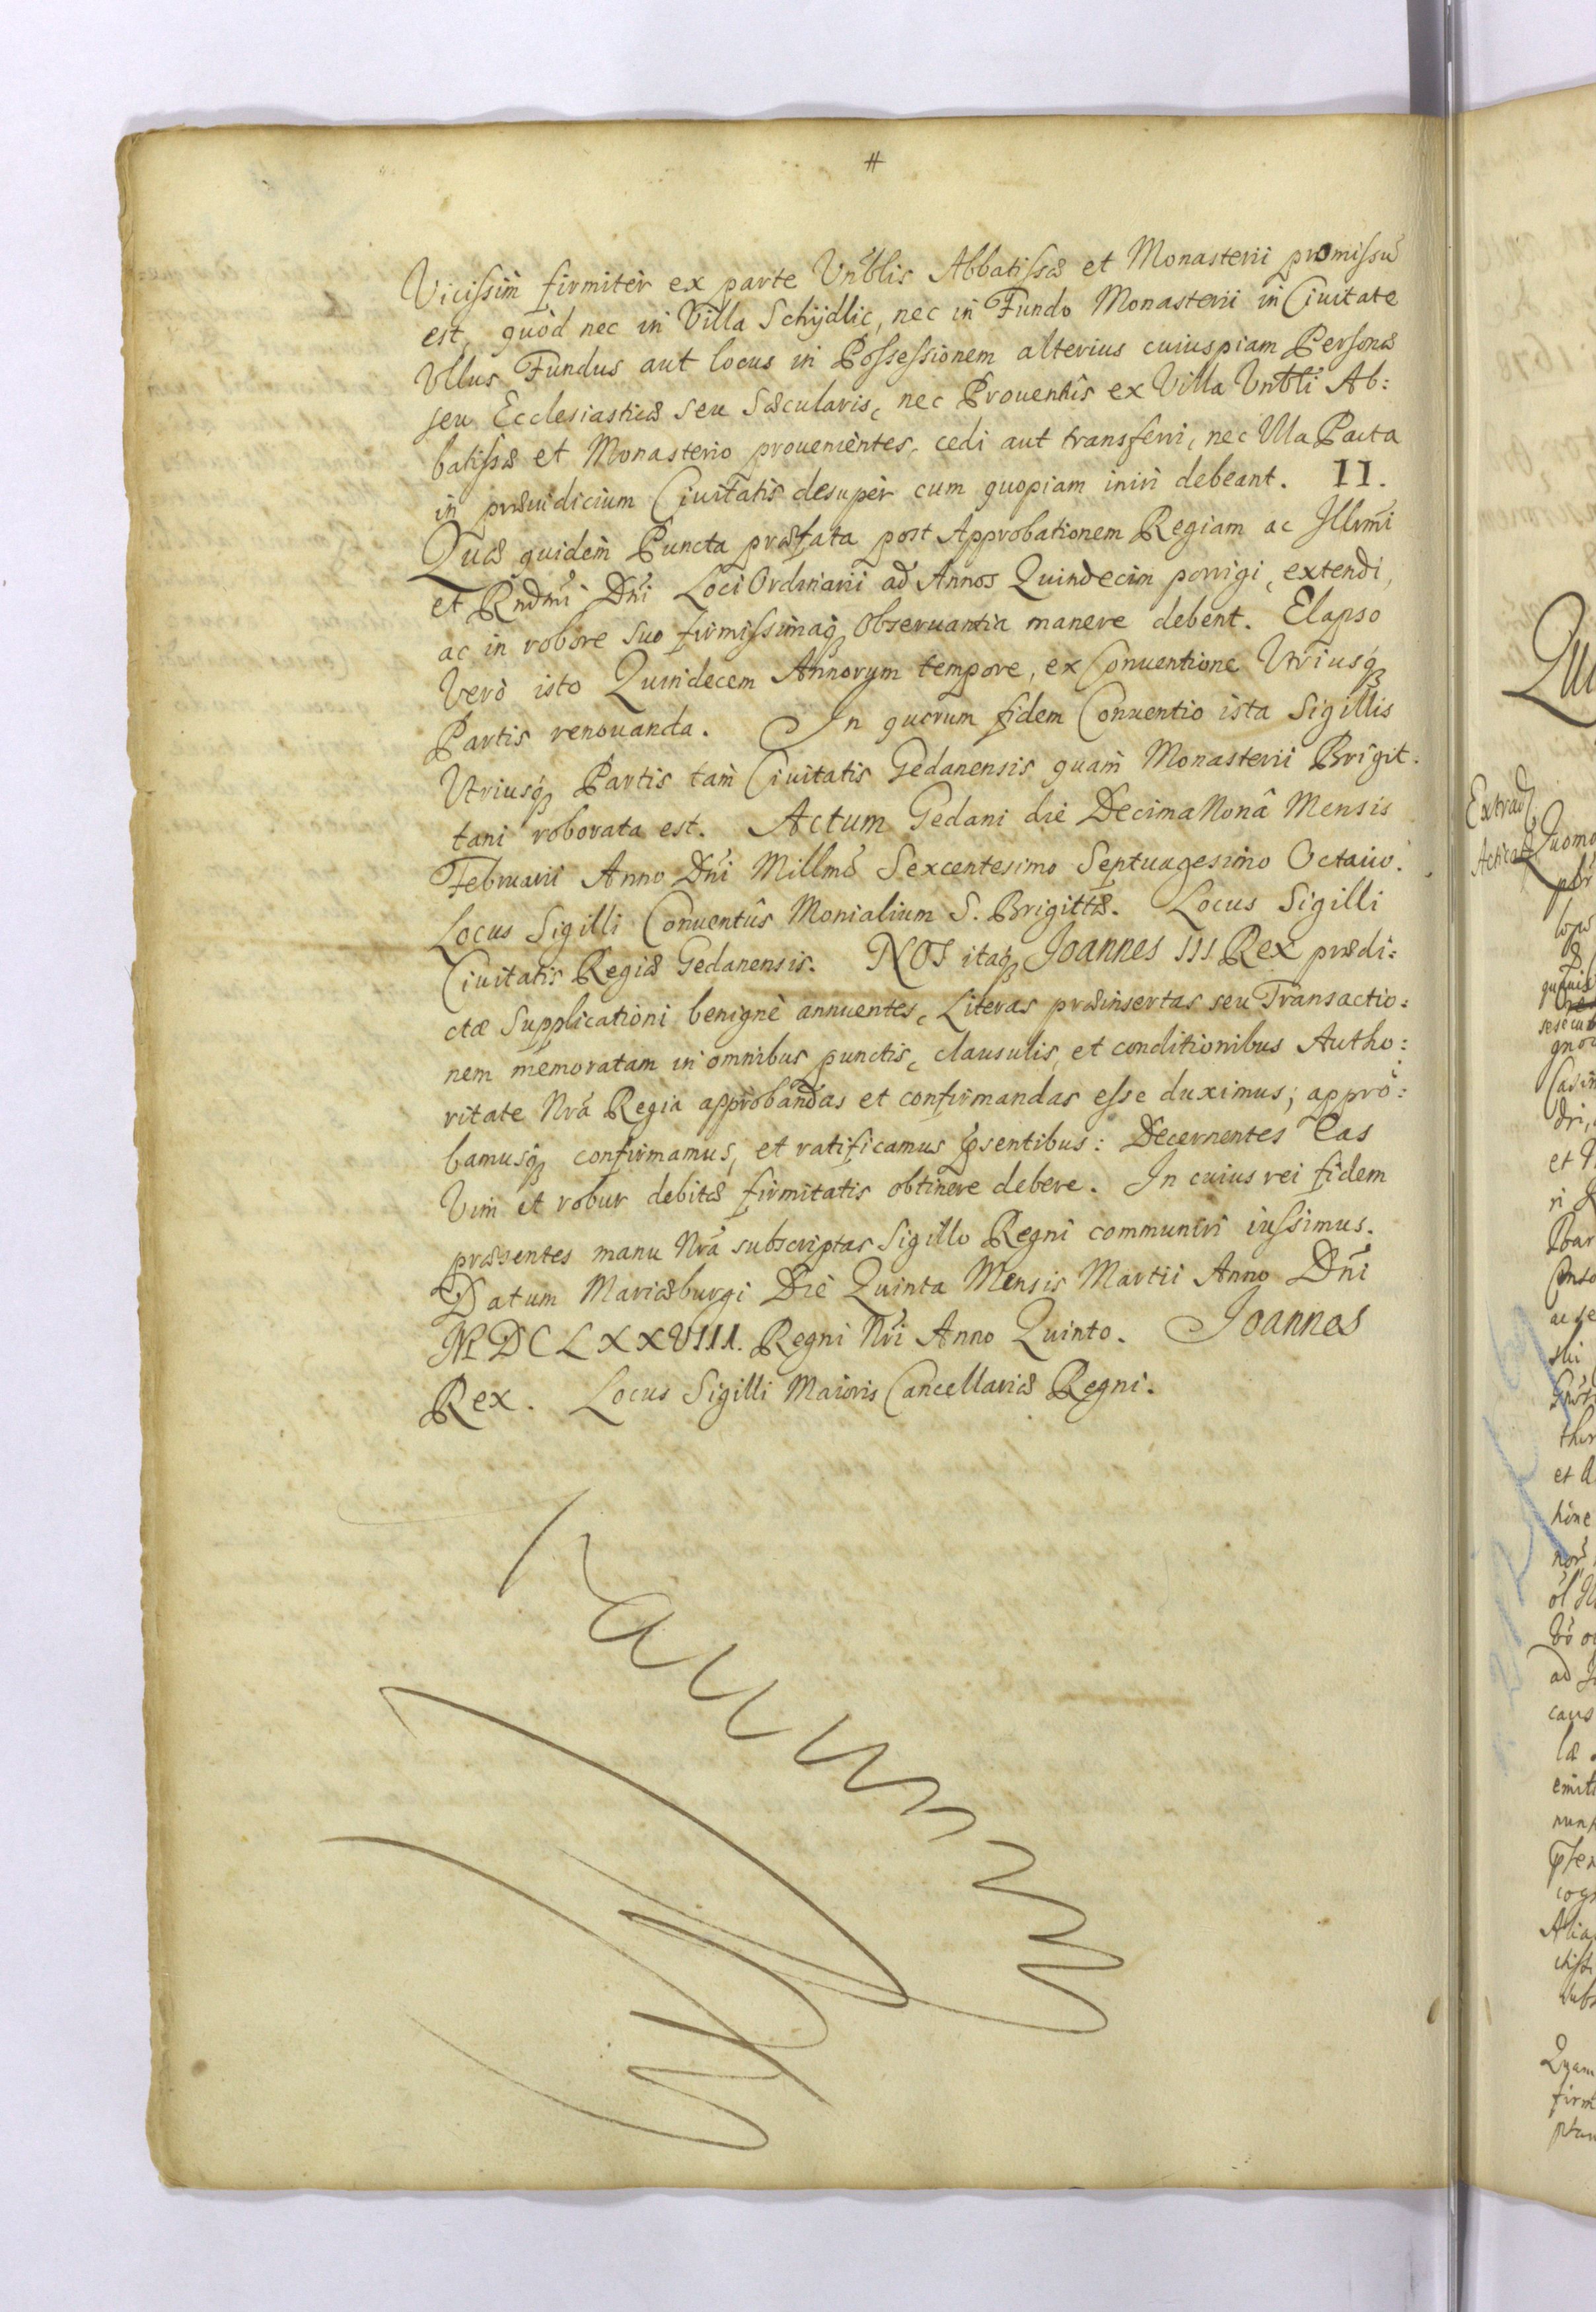 #
Vicissim firmiter ex parte Vnblis Abbatissæ et Monasterii promissũ
est, quòd nec in Villa Schijdlic, nec in Fundo Monasterii in Ciuitate
Vllus Fundus aut locus in Possessionem alterius cuiuspiam Personæ
seu Ecclesiasticæ seu Sæcularis, nec Prouentus ex Villa Vnbli Ab:
batissæ et Monasterio prouenientes, cedi aut transferri, nec Vlla Pacta
in præiudicium Ciuitatis desuper cum quopiam iniri debeant. II.
Quæ quidem Puncta præfata post Approbationem Regiam ac Illrmi
et Rndmi Dni Loci Ordinarii ad Annos Quindecim porrigi, extendi,
ac in robore suo firmissimaq Obseruantia manere debent. Elapso
Verò isto Quindecem Annorum tempore, ex Conuentione Vtriusq
Partis renouanda. In quorum fidem Conuentio ista Sigillis
Vtriusq Partis tam Ciuitatis Gedanensis quam Monasterii Brigit:
tani roborata est. Actum Gedani die Decima Nonâ Mensis
Februarii Anno Dni Millmo Sexcentesimo Septuagesimo Octauo.
Locus Sigilli Conuentûs Monialium S. Brigittæ. Locus Sigilli
Ciuitatis Regiæ Gedanensis. NOS itaq Joannes III Rex prædi:
ctæ Supplicationi benignè annuentes, Literas præinsertas seu Transactio:
nem memoratam in omnibus punctis, clausulis, et conditionibus Autho:
ritate Nrã Regia approbandas et confirmandas esse duximus; appro:
bamusq confirmamus, et ratificamus psentibus: Decernentes Eas
Vim et robur debitæ firmitatis obtinere debere. In cuius rei fidem
præsentes manu Nrã subscriptas Sigillo Regni communiri iussimus.
Datum Mariæburgi Die Quinta Mensis Martii Anno Dni
MDCLXXVIII. Regni Nri Anno Quinto. Joannes
Rex. Locus Sigilli Maioris Cancellariæ Regni.